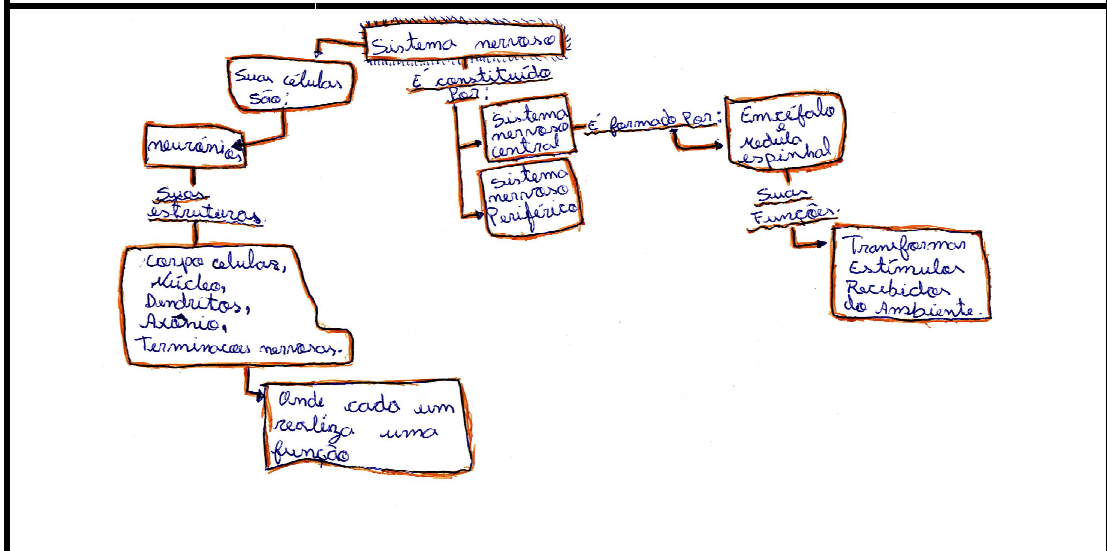 Sistema nervoso
Suas células
São:
É constituído
Por:
neurônios
Suas
estruturas.
corpo celulas,
Núcleo,
Dendritos,
Axônio,
Terminacoes nervosas.
Onde cada um
realiza uma
função
Sistema
nervoso
central
Sistema
nervoso
Periférico
É formado Por:
Emcéfalo
e
medula
espinhal
Suas
Funções.
Transformar
Estímulos
Recebidos
do Ambiente.